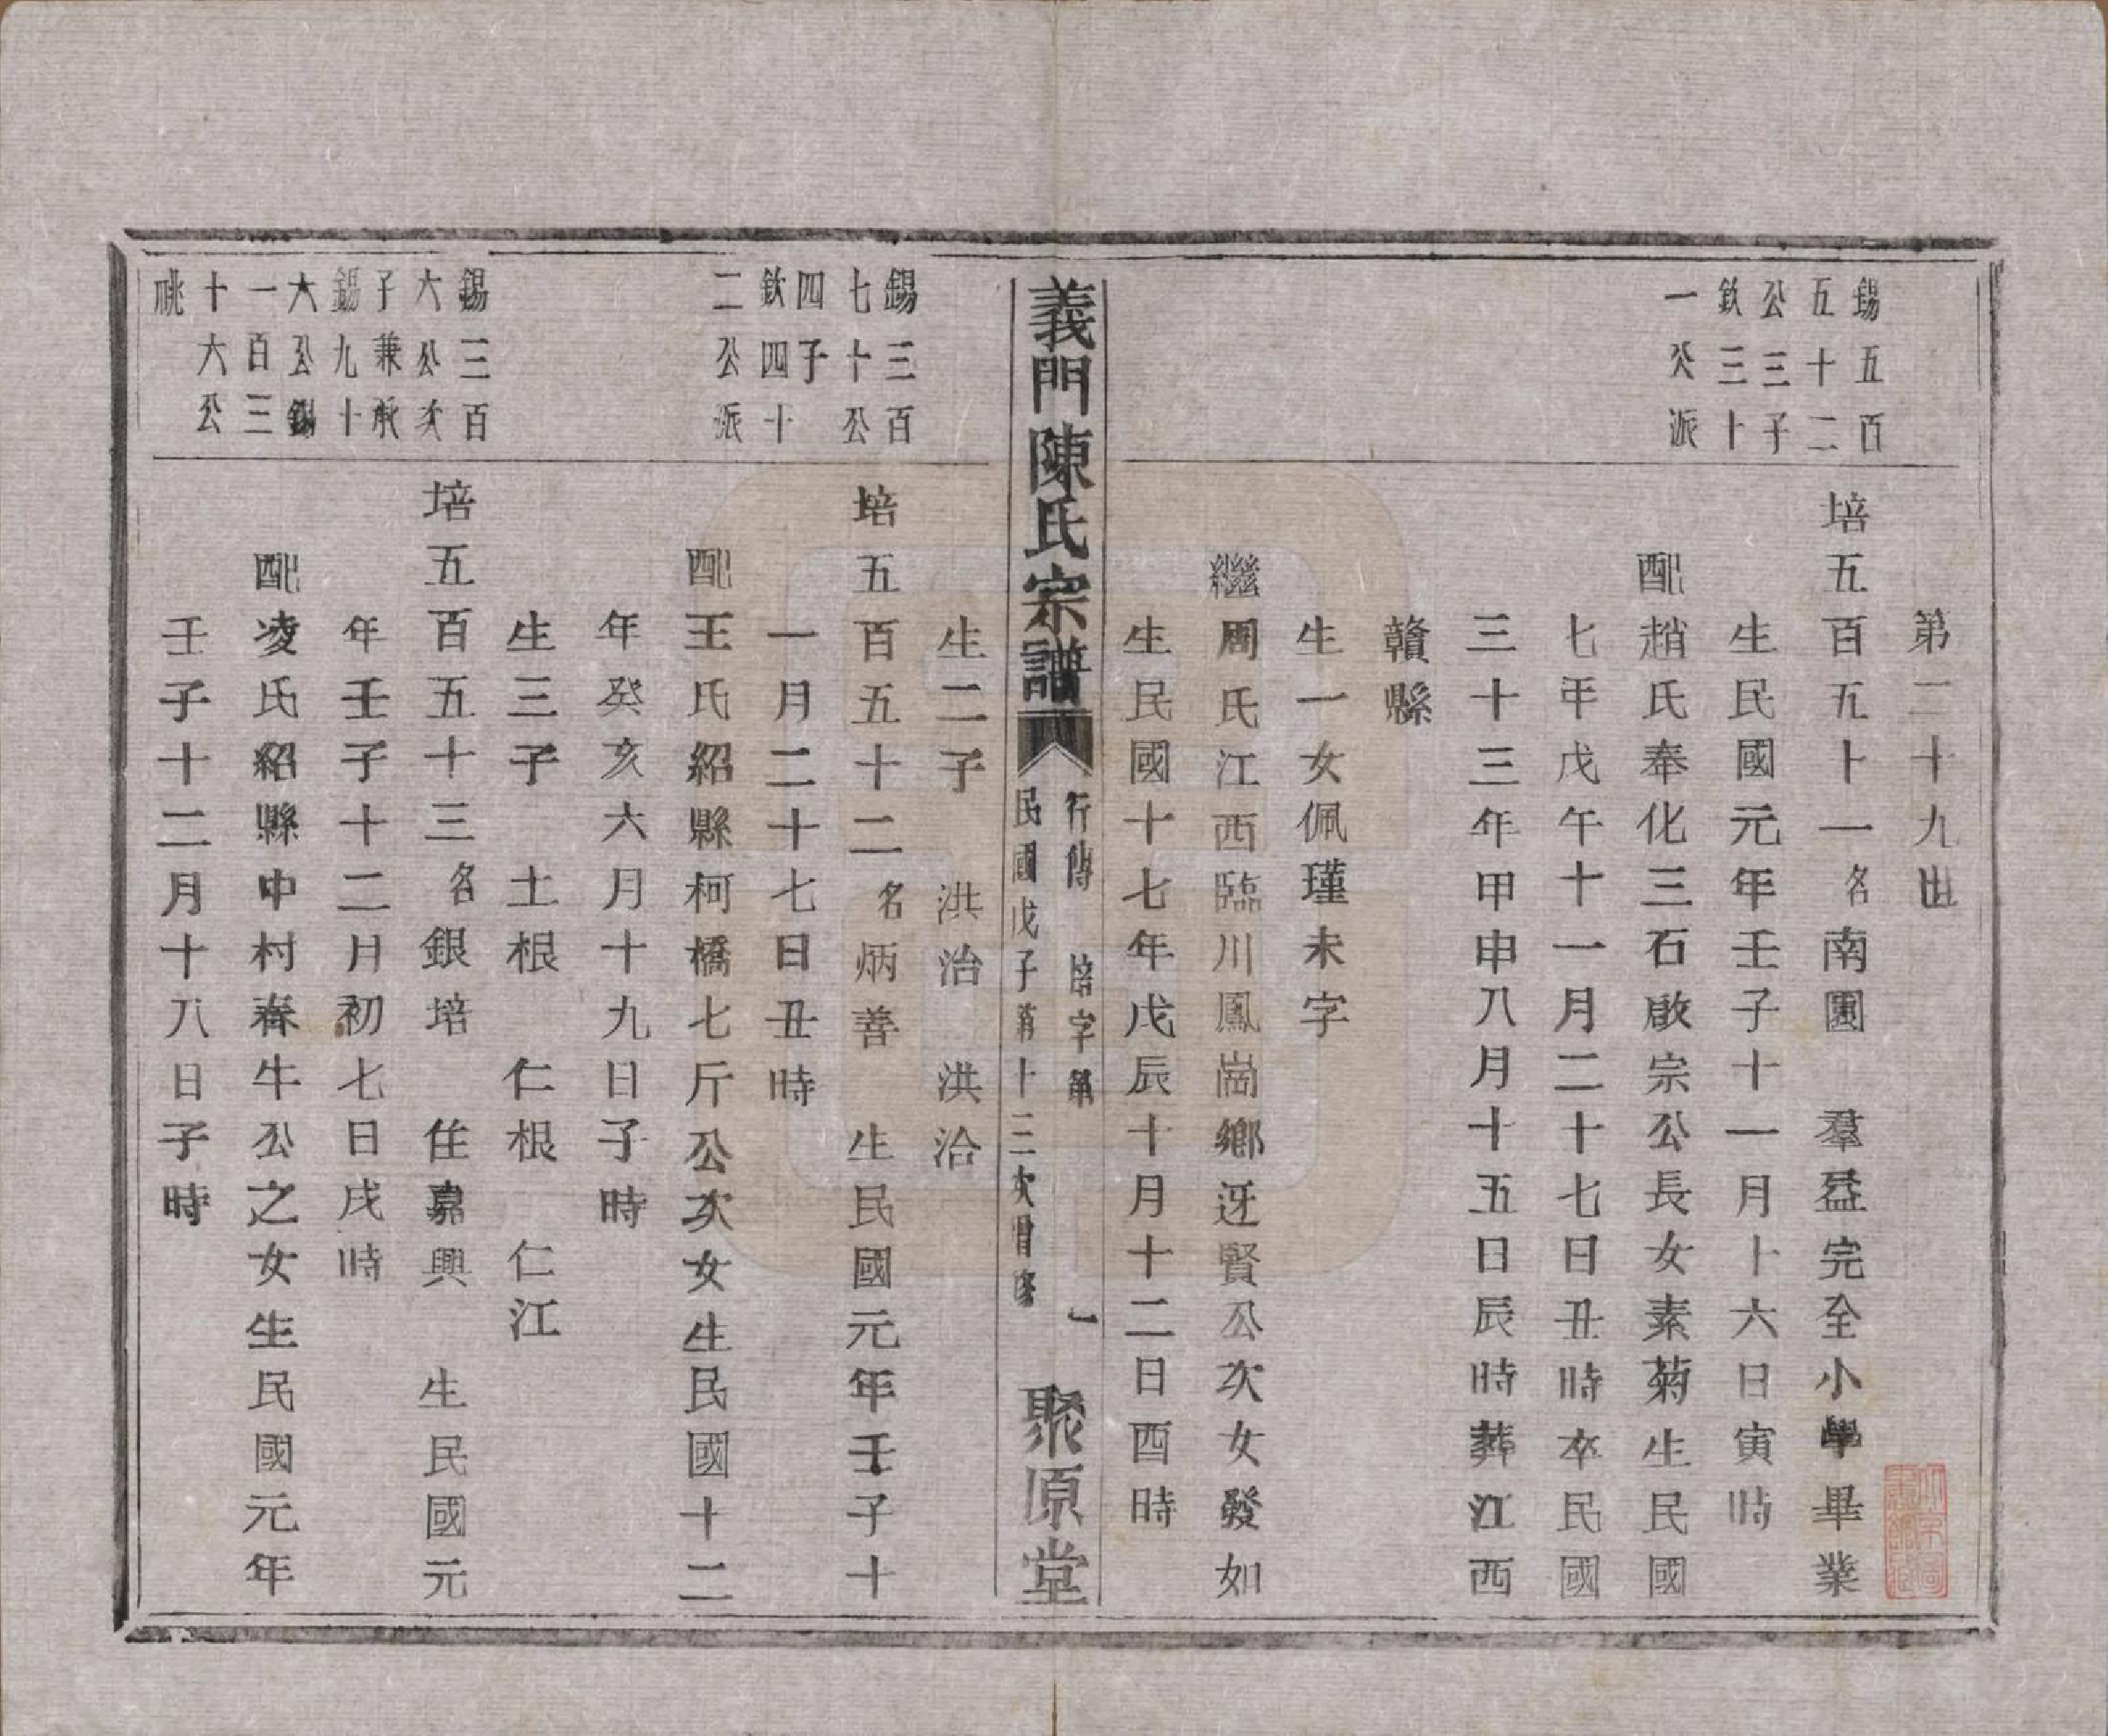 第二十九世
錫五百
五十二
公三子
欽三十
一公派
培五百五十一名南園　羣益完全小學畢業
生民國元年壬子十一月十六日寅時
配趙氏奉化三石啟宗公長女素菊生民國
七年戊午十一月二十七日丑時卒民國
三十三年甲申八月十五日辰時葬江西
贛縣
生一女佩瑾未字
繼周氏江西臨川鳳崗鄉迓賢公次女發如
生民國十七年戊辰十月十二日酉時
義門陳氏宗譜
行傳　培字第　一
民國戊子第十三次增修
聚原堂
生二子　洪治　洪洽
錫三百
七十公
四子
欽四十
二公派
培五百五十二名炳善　生民國元年壬子十
一月二十七日丑時
配王氏紹縣柯橋七斤公次女生民國十二
年癸亥六月十九日子時
生三子　土根　仁根　仁江
錫三百
六公次
子兼承
錫九十
六公錫
一百三
十六公
祧
培五百五十三名銀培　住嘉興　生民國元
年壬子十二月初七日戌時
配凌氏紹縣中村春牛公之女生民國元年
壬子十二月十八日子時